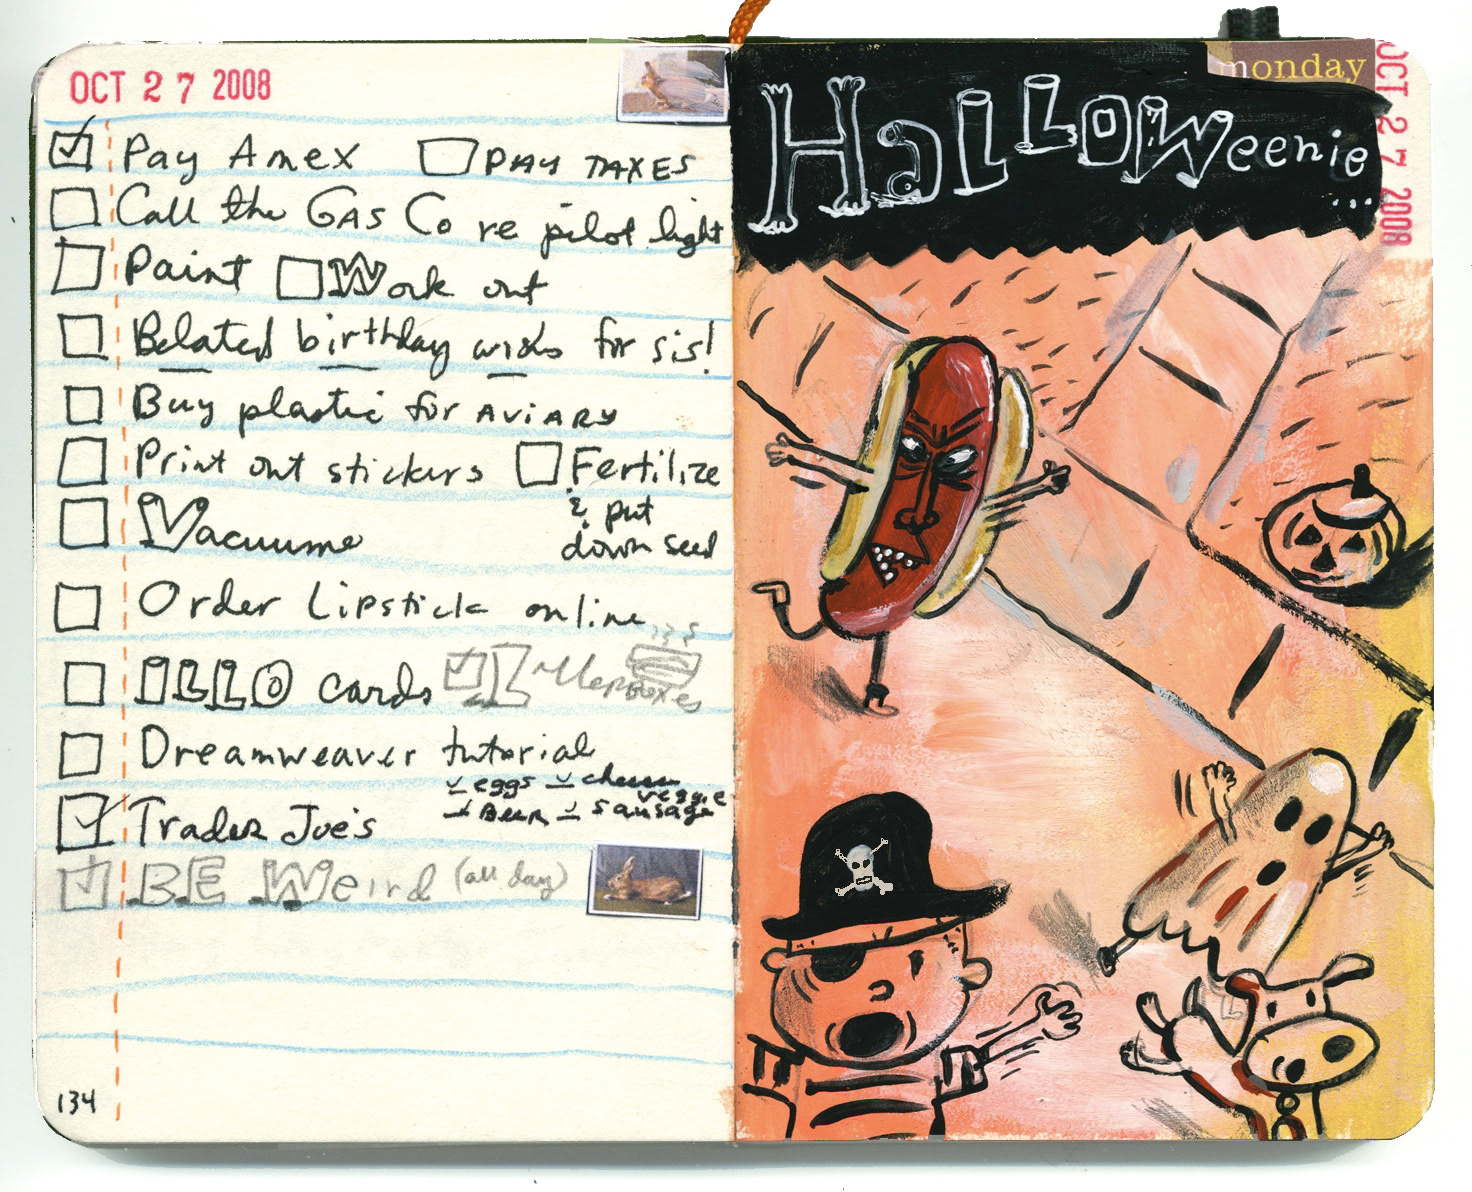 OCT 27 2008
Pay Amex PAY TAXES
Call the GAS Co re pilot light
Paint Work out
Belated birthday wishs for sis!
Buy plastic for AVIARY
Print out stickers Fertilize
& put
down seed
Vacuume
Order Lipstick online
ILLO cards Letterboxes
Dreamweaver tutorial
eggs cheese
BEER veggie
sausage
Trader Joe's
BE Weird (all day)
134
monday
HaLLOWeenie
...
OCT 27 2008